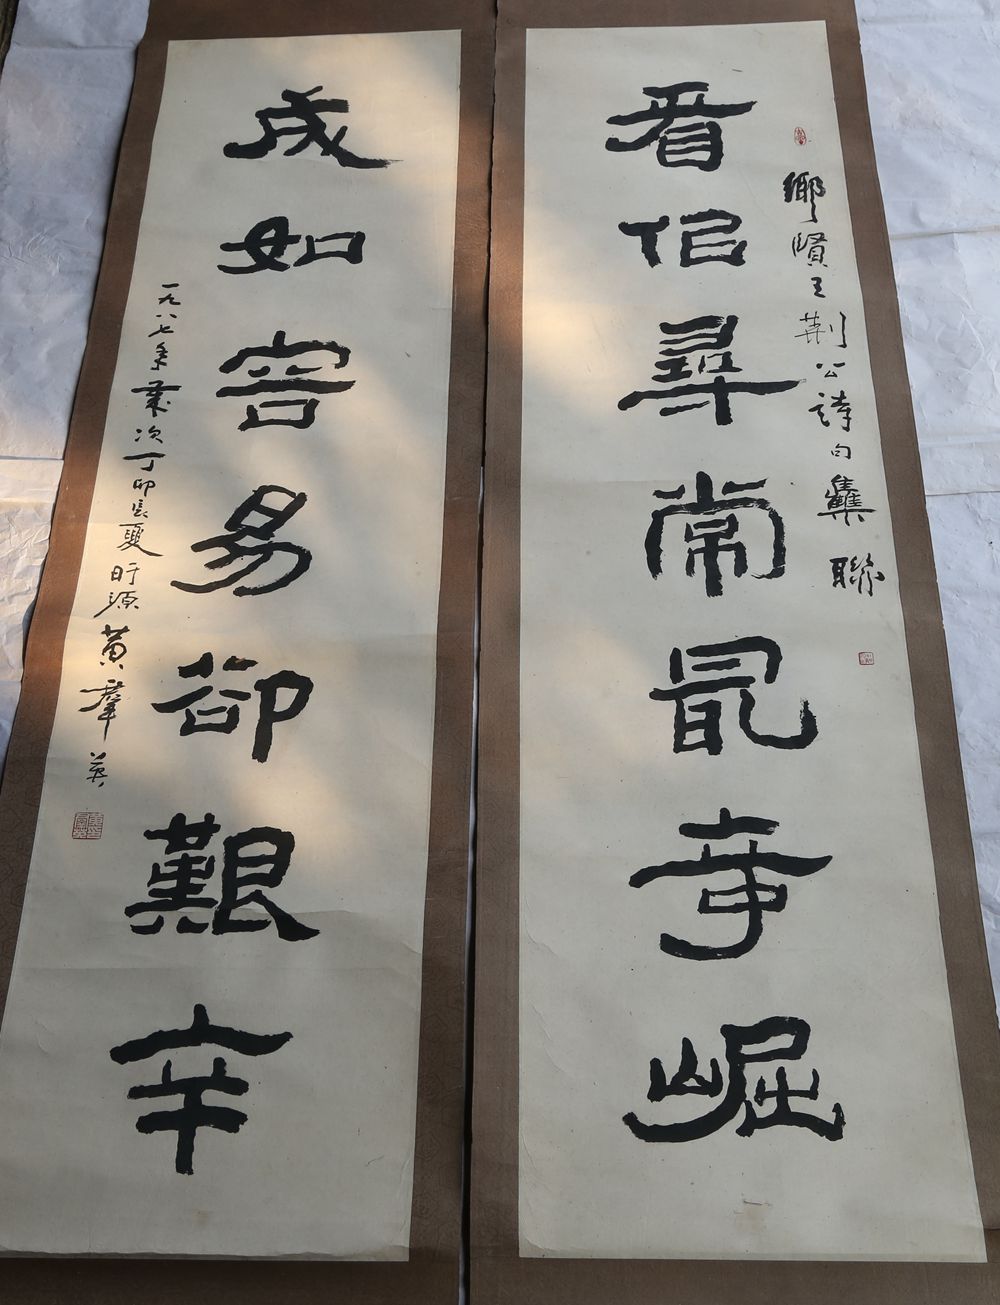 看佀尋常最奇崛
鄉賢王荊公詩句雧聯
成如容易卻艱辛
一九八七年歲次丁卯長夏盱源黃羣英